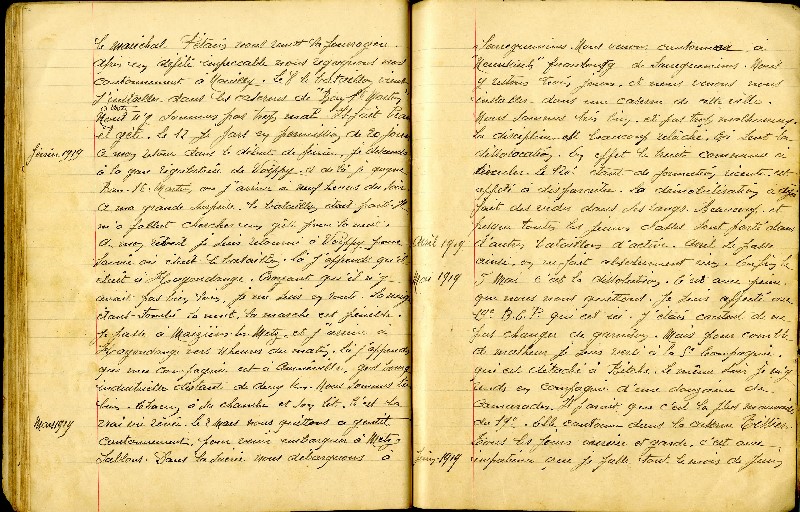 Le maréchal Pétain nous remet la fourragère.
Après un défilé impeccable nous regagnons nos
cantonnement à . Le 8 le bataillon vient
s'installer dans les casernes de "Ban St Martin"
Nous n'y sommes pas trop mal. Il fait
et gèle. Le 12 je pars en permission de 20 jours
février 1919
A mon retour dans le début de février, je descends
à la gare régulatrice de Woippy. et de là je gagne
Ban-St-Martin, ou j'arrive à neuf heures du soir
a ma grande surprise, le bataillon était parti. Il
m'a fallut chercher un gîte pour la nuit.
Au je suis retourné à Woippy pour
savoir où était le bataillon. là j'apprends qu'il
était à Hagondange. Croyant qu'il n'y
avait pas bien loin, je me mis en route. La neige
étant tombée la nuit, la marche est pénible.
Je passe à Maizières-les-Metz, et j'arrive à
Hagondange vers 11 heures du matin. Là j'apprends
que ma compagnie est a Amnéville, gros bourg
industrielle distant de deux km. Nous sommes très
bien. chacun à sa chambre et son lit. C'est la
Mars 1919
vrai vie rêvée. Le 2 Mars nous quittons ce gentil
cantonnement, pour venir embarquer à Metz-
Sablons. Dans la soirée nous débarquons à
Sarreguemines. Nous venons cantonner à
"Neunkirch" faubourg de Sarreguemines. Nous
y restons trois jours, et nous venons nous
installer dans une caserne de cette ville.
Nous sommes très bien, et pas trop malheureux.
La discipline est beaucoup relâché, ici sent la
dissolution. En effet le bruit commence a
circuler. Le étant de formation récente est
appelé à disparaître. La démobilisation a déjà
fait des vides dans les rangs. Beaucoup et
presque toutes les jeunes classes sont partis dans
Avril 1919
d'autres bataillons d'active. Avril se passe
ainsi, on ne fait absolument rien. Enfin le
Mai 1919
5 Mai c'est la dissolution. C'est avec peine
que nous nous quittons. Je suis affecté au
19e B.C.P. qui est ici. J'étais content de ne
pas changer de garnison. Mais pour comble
de malheur je suis versé à la 5e Compagnie
qui est détaché à Bitche. Le même soir je m'y
rends en compagnie d'une douzaine de
camarades. Il paraît que c'est la plus mauvaise
du 19e. Elle cantonne dans la caserne
Tous les jours exercice et garde, c'est avec
Juin 1919
impatience que je passe tout le mois de Juin